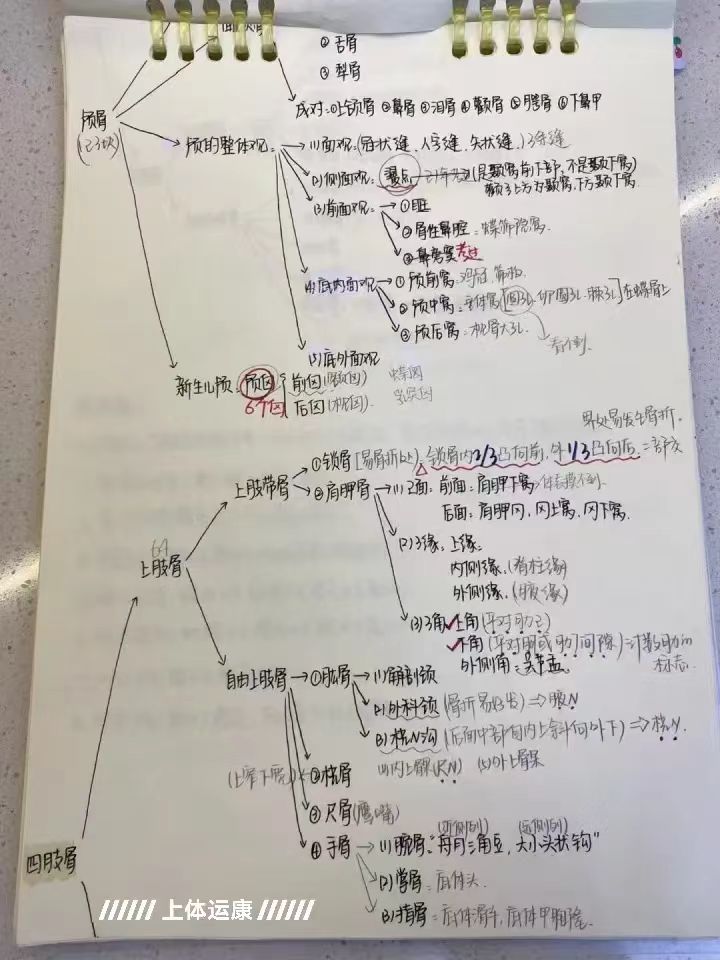 ② 舌骨
③ 犁骨
成对：①上颌骨 ②鼻骨 ③泪骨 ④颧骨 ⑤腭骨 ⑥下鼻甲
颅骨
(23块)
颅的整体观：
(1)面观：(冠状缝、人字缝、矢状缝，)3条缝
(2)侧面观：翼点
(是颞窝前下部，不是颞下窝)
颧弓上方为颞窝，下方颞下窝
(3)前面观：①眶
②骨性鼻腔：蝶筛隐窝
③鼻旁窦
(4)底内面观：①颅前窝：鸡冠、筛板
②颅中窝：垂体窝[圆孔、卵圆孔、棘孔]在蝶骨上
③颅后窝：枕骨大孔
看侧
(5)底外面观
新生儿颅：颅囟
6个囟
前囟(额囟) 蝶囟
后囟(枕囟) 乳突囟
易发生骨折
①锁骨[易骨折处]锁骨内2/3凸向前，外1/3凸向后
上肢带骨
②肩胛骨
(1)2面：前面：肩胛下窝
后面：肩胛冈，冈上窝，冈下窝
(2)3缘：上缘
内侧缘(脊柱缘)
外侧缘(腋缘)
64
上肢骨
(3)3角 上角(平对肋2)
下角(平对肋7或肋7间隙)=计数肋的
标志
外侧角：关节盂
自由上肢骨
①肱骨
(1)解剖颈
(2)外科颈(骨折易好发)⇒腋N
(3)桡N沟(后面中部自内上斜向外下)⇒桡N
(4)内上髁 (5)外上髁
②桡骨(上窄下宽)
③尺骨(鹰嘴)
④手骨
(近侧列) (远侧列)
(1)腕骨："舟月三角豆，大小头状钩"
(2)掌骨：底体头
(3)指骨：底体滑车，底体甲粗隆
四肢骨
////// 上体运康 //////